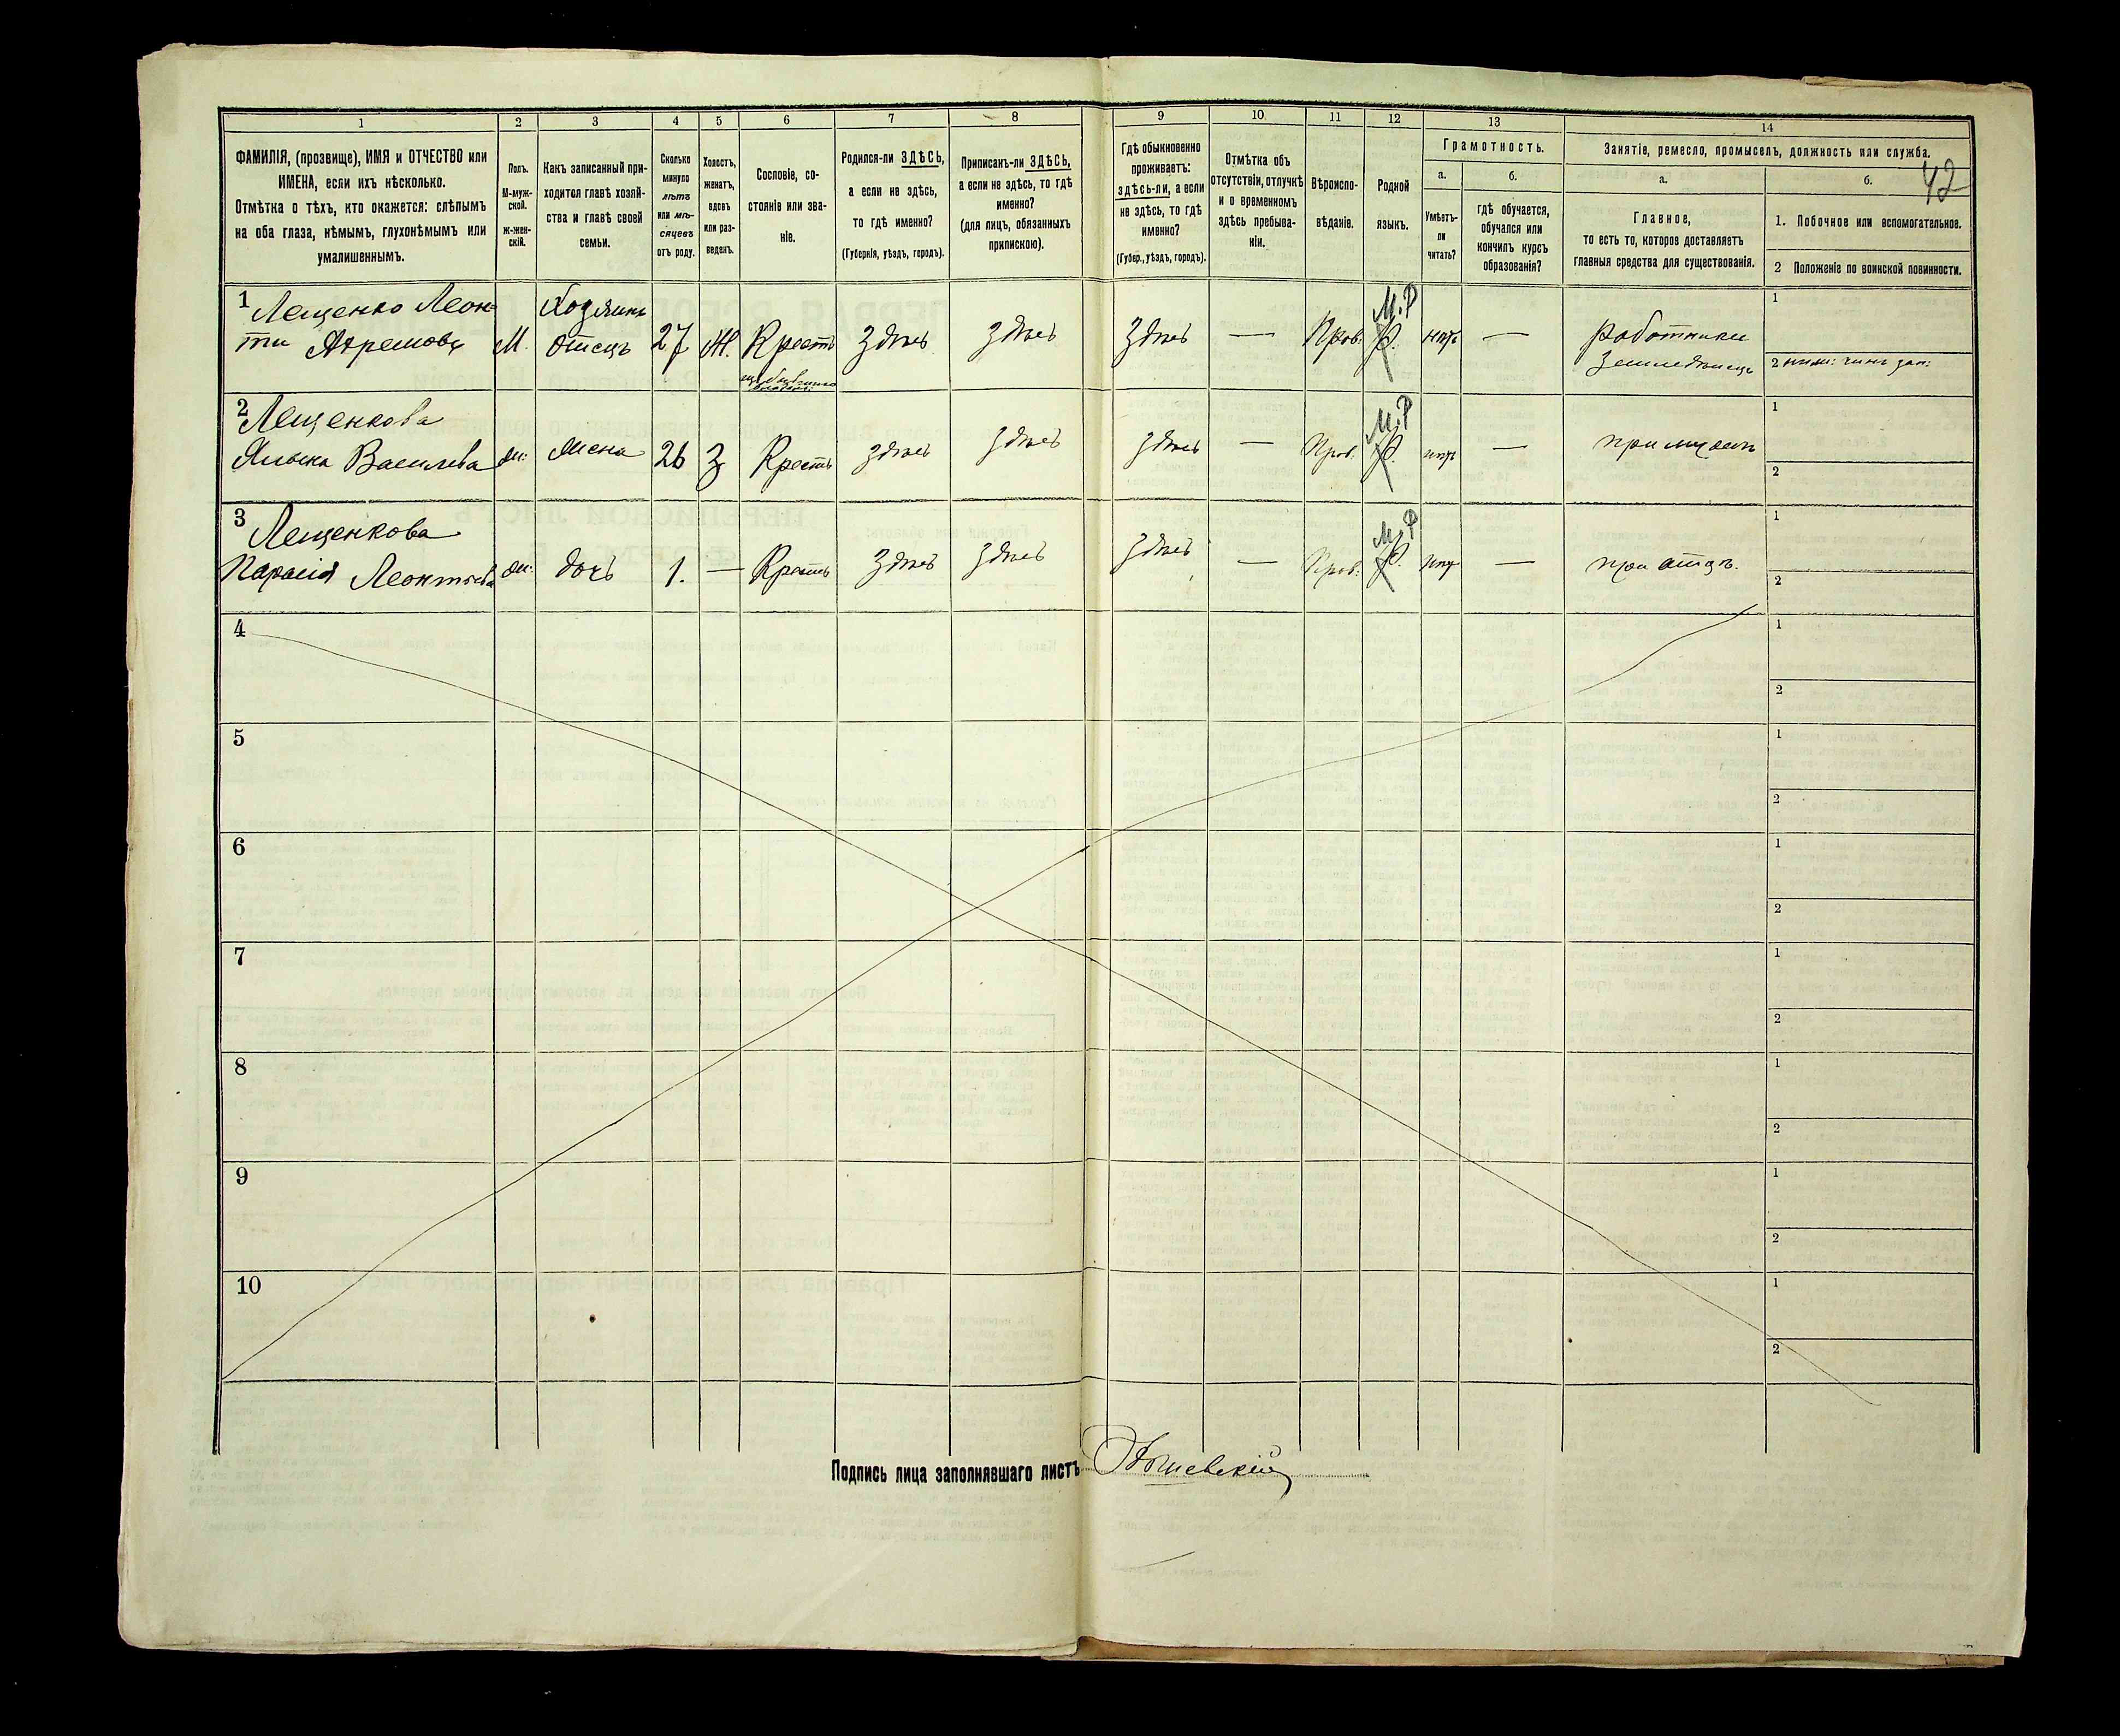 1
2
3
4
5
6
7
8
9
10
11
12
13
14
ФАМИЛІЯ, (прозвище), ИМЯ и ОТЧЕСТВО или
ИМЕНА, если ихъ нѣсколько.
Отмѣтка о тѣхъ, кто окажется: слѣпымъ
на оба глаза, нѣмымъ, глухонѣмымъ или
умалишеннымъ.
Полъ.
М-муж-
ской.
ж-жен-
скій.
Какъ записанный при-
ходится главѣ хозяй-
ства и главѣ своей
семьи.
Сколько
минуло
лѣтъ
или мѣ-
сяцевъ
отъ роду.
Холостъ,
женатъ,
вдовъ
или раз-
веденъ.
Сословіе, со-
стояніе или зва-
ніе.
Родился-ли ЗДѢСЬ,
а если не здѣсь,
то гдѣ именно?
(Губернія, уѣздъ, городъ).
Приписанъ-ли ЗДѢСЬ,
а если не здѣсь, то гдѣ
именно?
(для лицъ, обязанныхъ
припискою).
Гдѣ обыкновенно
проживаетъ:
здѣсь-ли, а если
не здѣсь, то гдѣ
именно?
(Губер., уѣздъ, городъ).
Отмѣтка объ
отсутствіи, отлучкѣ
и о временномъ
здѣсь пребыва-
ніи.
Вѣроиспо-
вѣданіе.
Родной
языкъ.
Грамотность.
а.
Умѣетъ-
ли
читать?
б.
гдѣ обучается,
обучался или
кончилъ курсъ
образованія?
Занятіе, ремесло, промыселъ, должность или служба.
42
а.
Главное,
то есть то, которое доставляетъ
главныя средства для существованія.
б.
1. Побочное или вспомогательное.
2 Положеніе по воинской повинности.
1 Лещенко Леон-
ти
М.
Хозяинъ
отецъ
27
Ж.
Крест
здѣсь
здѣсь
здѣсь
—
Прав.
М.Р
нтъ
—
работники
Земледѣлецъ
1
2 ниж: чинъ зап:
2 Лещенкова
Васильева
ж:
жена
26
З
Крестъ
здѣсь
здѣсь
здѣсь
—
Прав.
М.Р
нтъ
—
при мужѣ
1
2
3 Лещенкова
Параскія Леонтьева
ж:
дочь
1.
—
Крестъ
здѣсь
здѣсь
здѣсь
—
Прав.
М.Р
нтъ
—
при отцѣ.
1
2
4
1
2
5
1
2
6
1
2
7
1
2
8
1
2
9
1
2
10
1
2
Подпись лица заполнявшаго листъ